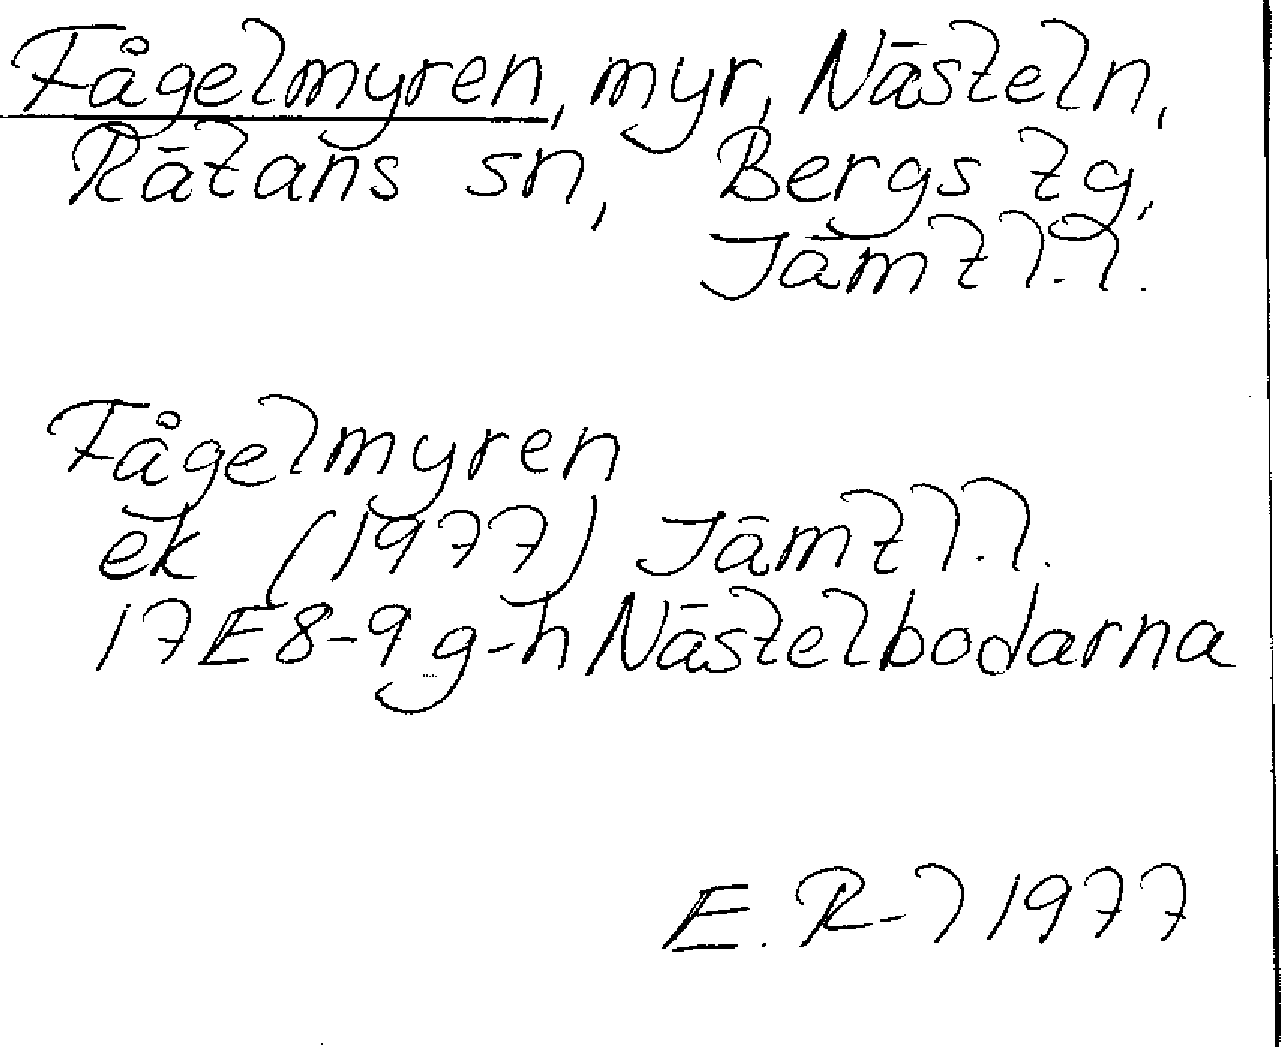 Fågelmyren, myr, Nästeln,
Rätans sn, Bergs tg,
Jämtl.l.
Fågelmyren
ek (1977) Jämtl.l.
17E8-9 g-h Nästelbodarna
E. R-l 1977